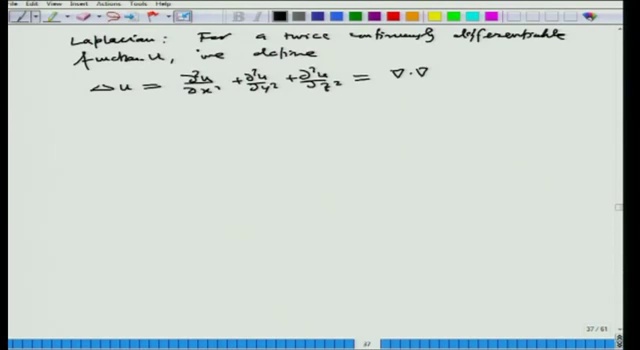 View Insert Actions Tools Help
Laplacian: For a twice continuously differentiable
function u, we define
Δu = ∂²u/∂x² + ∂²u/∂y² + ∂²u/∂z² = ∇·∇
37 / 61
37